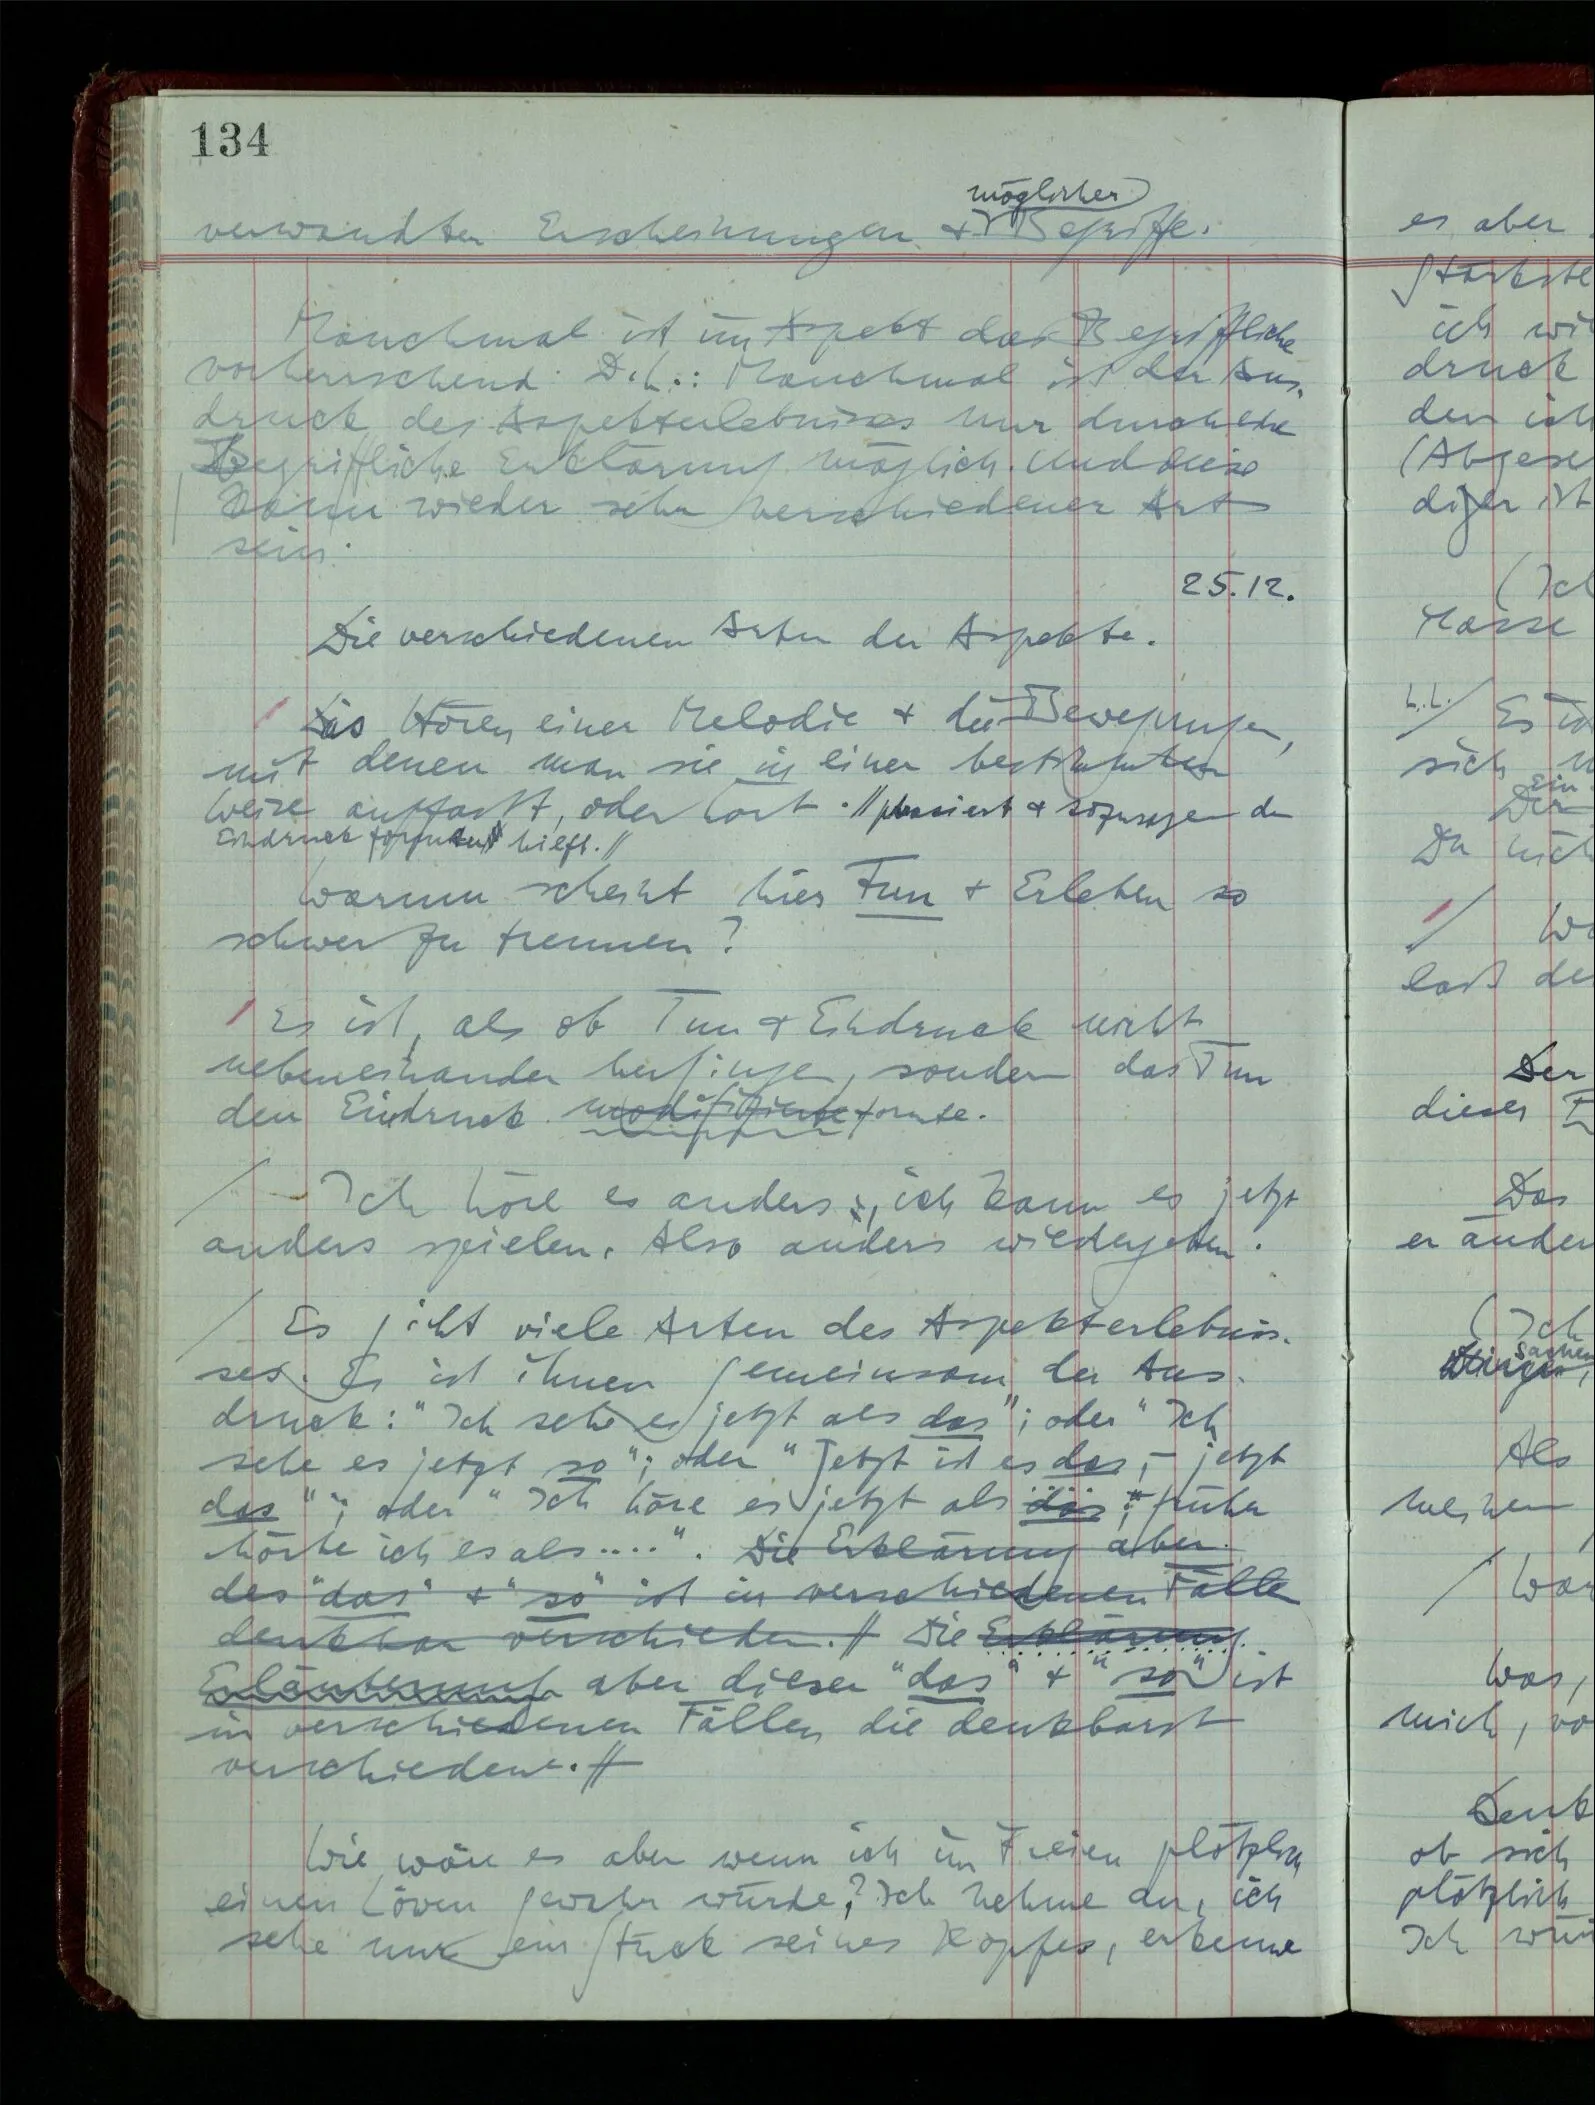 134
möglicher
verwandter Erscheinungen & Begriffe.
Manchmal ist im Aspekt das Begriffliche
vorherrschend. D.h.: Manchmal ist der Aus-
druck des Aspekterlebnisses nur durch eine
Begriffliche Erklärung möglich. Und diese
kann wieder sehr verschiedener Art
sein.
25.12.
Die verschiedenen Arten der Aspekte.
Das Hören einer Melodie & die Bewegungen,
mit denen man sie in einer bestimmten
Weise auffaßt, oder hört. // & sozusagen den
Eindruck hilft. //
Warum scheint hier Tun & Erleben so
schwer zu trennen?
Es ist, als ob Tun & Eindruck nicht
nebeneinander hergingen, sondern das Tun
den Eindruck modifizierte formte.
Ich höre es anders, ich kann es jetzt
anders spielen. Also anders wiedergeben.
Es gibt viele Arten des Aspekterlebnis-
ses. Es ist ihnen gemeinsam der Aus-
druck: "Ich sehe es jetzt als das"; oder "Ich
sehe es jetzt so"; oder "Jetzt ist es das, – jetzt
das"; oder "Ich höre es jetzt als das; früher
hörte ich es als ....". Die Erklärung aber
des "das" & "so" ist in verschiedenen Fällen
denkbar verschieden. // Die Erklärung
Erläuterung aber dieser "das" & "so" ist
in verschiedenen Fällen die denkbarst
verschiedene. //
Wie wäre es aber wenn ich im Freien plötzlich
einen Löwen gewahr würde? Ich nehme an, ich
sehe nur ein Stück seines Kopfes, erkenne
es aber
ich
druck
den ich
(Abgese
ist
(Ich
Masse
Es
sich
Ein
Der
Du
Der
dieser
Das
er
(Ich
Sachen
Als
Was,
mich,
Denk
ob sich
plötzlich
Ich